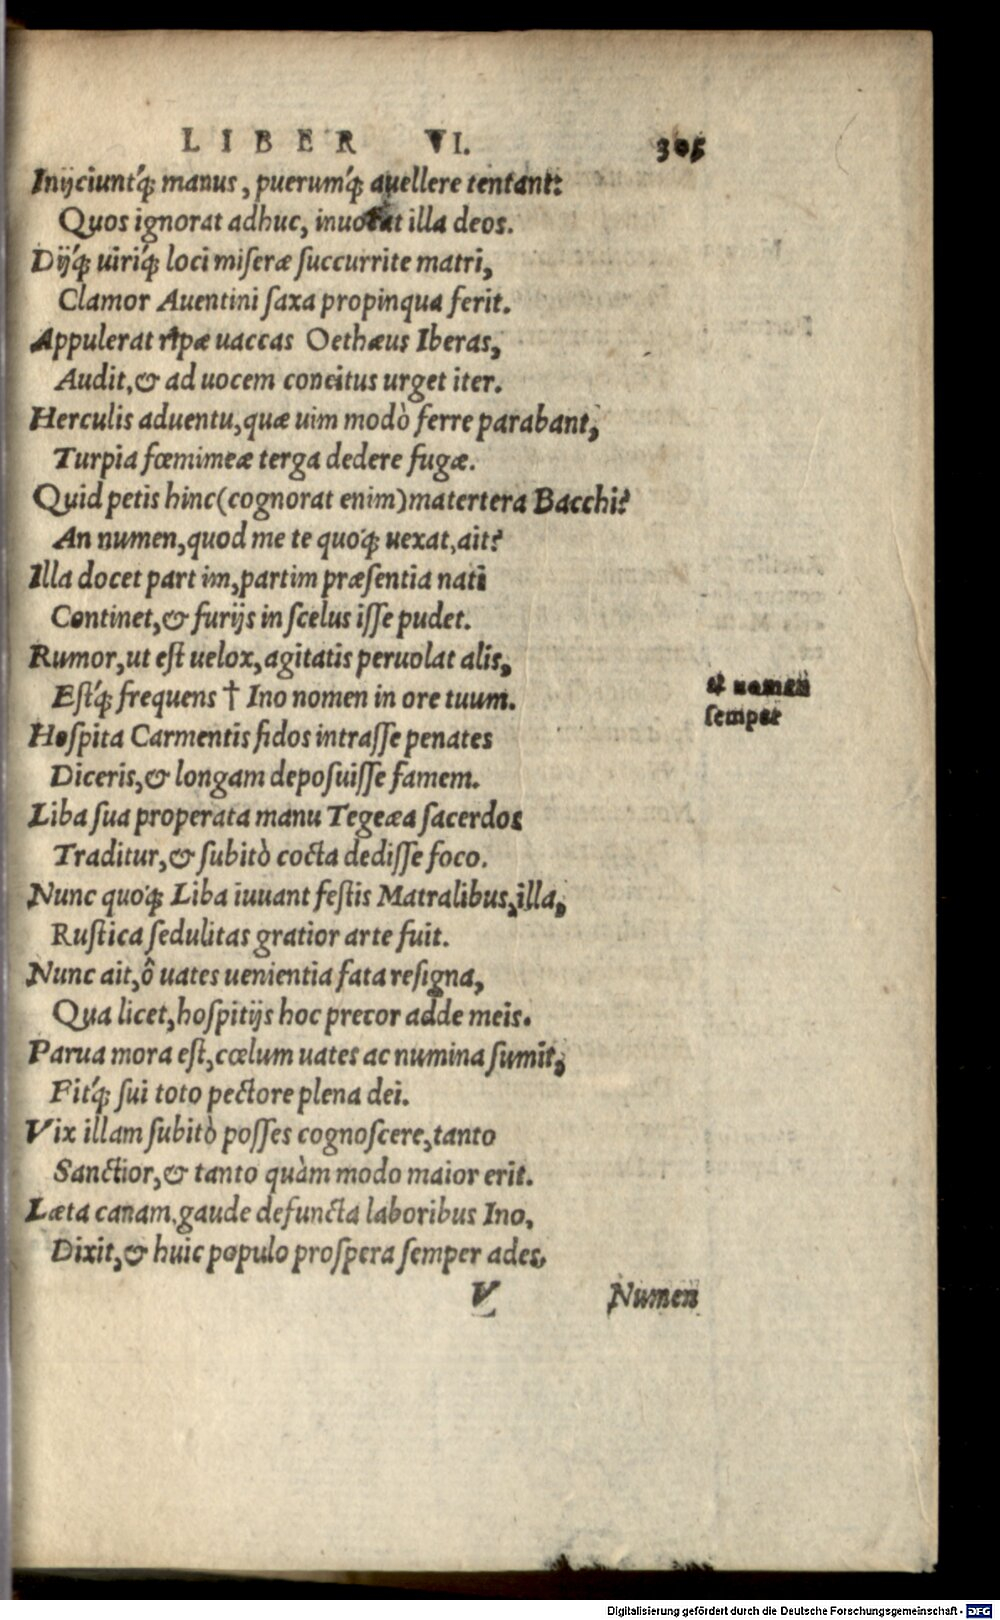 LIBER VI. 305
Inijciuntq́; manus, puerumq́; auellere tentant:
Quos ignorat adhuc, inuocat illa deos.
Dijq́; uiriq́; loci miseræ succurrite matri,
Clamor Auentini saxa propinqua ferit.
Appulerat ripæ uaccas Oethæus Iberas,
Audit, & ad uocem concitus urget iter.
Herculis aduentu, quæ uim modò ferre parabant,
Turpia fœmimeæ terga dedere fugæ.
Quid petis hinc (cognorat enim) matertera Bacchi?
An numen, quod me te quoq́; uexat, ait?
Illa docet part im, partim præsentia nati
Continet, & furijs in scelus isse pudet.
Rumor, ut est uelox, agitatis peruolat alis,
Estq́; frequens † Ino nomen in ore tuum.
et nomen
semper
Hospita Carmentis fidos intrasse penates
Diceris, & longam deposuisse famem.
Liba sua properata manu Tegeæa sacerdos
Traditur, & subitò cocta dedisse foco.
Nunc quoq́; Liba iuuant festis Matralibus, illa,
Rustica sedulitas gratior arte fuit.
Nunc ait, ô uates uenientia fata resigna,
Qua licet, hospitijs hoc precor adde meis.
Parua mora est, cœlum uates ac numina sumit,
Fitq́; sui toto pectore plena dei.
Vix illam subitò posses cognoscere, tanto
Sanctior, & tanto quàm modo maior erit.
Læta canam, gaude defuncta laboribus Ino,
Dixit, & huic populo prospera semper ades.
V Numen
Digitalisierung gefördert durch die Deutsche Forschungsgemeinschaft - DFG